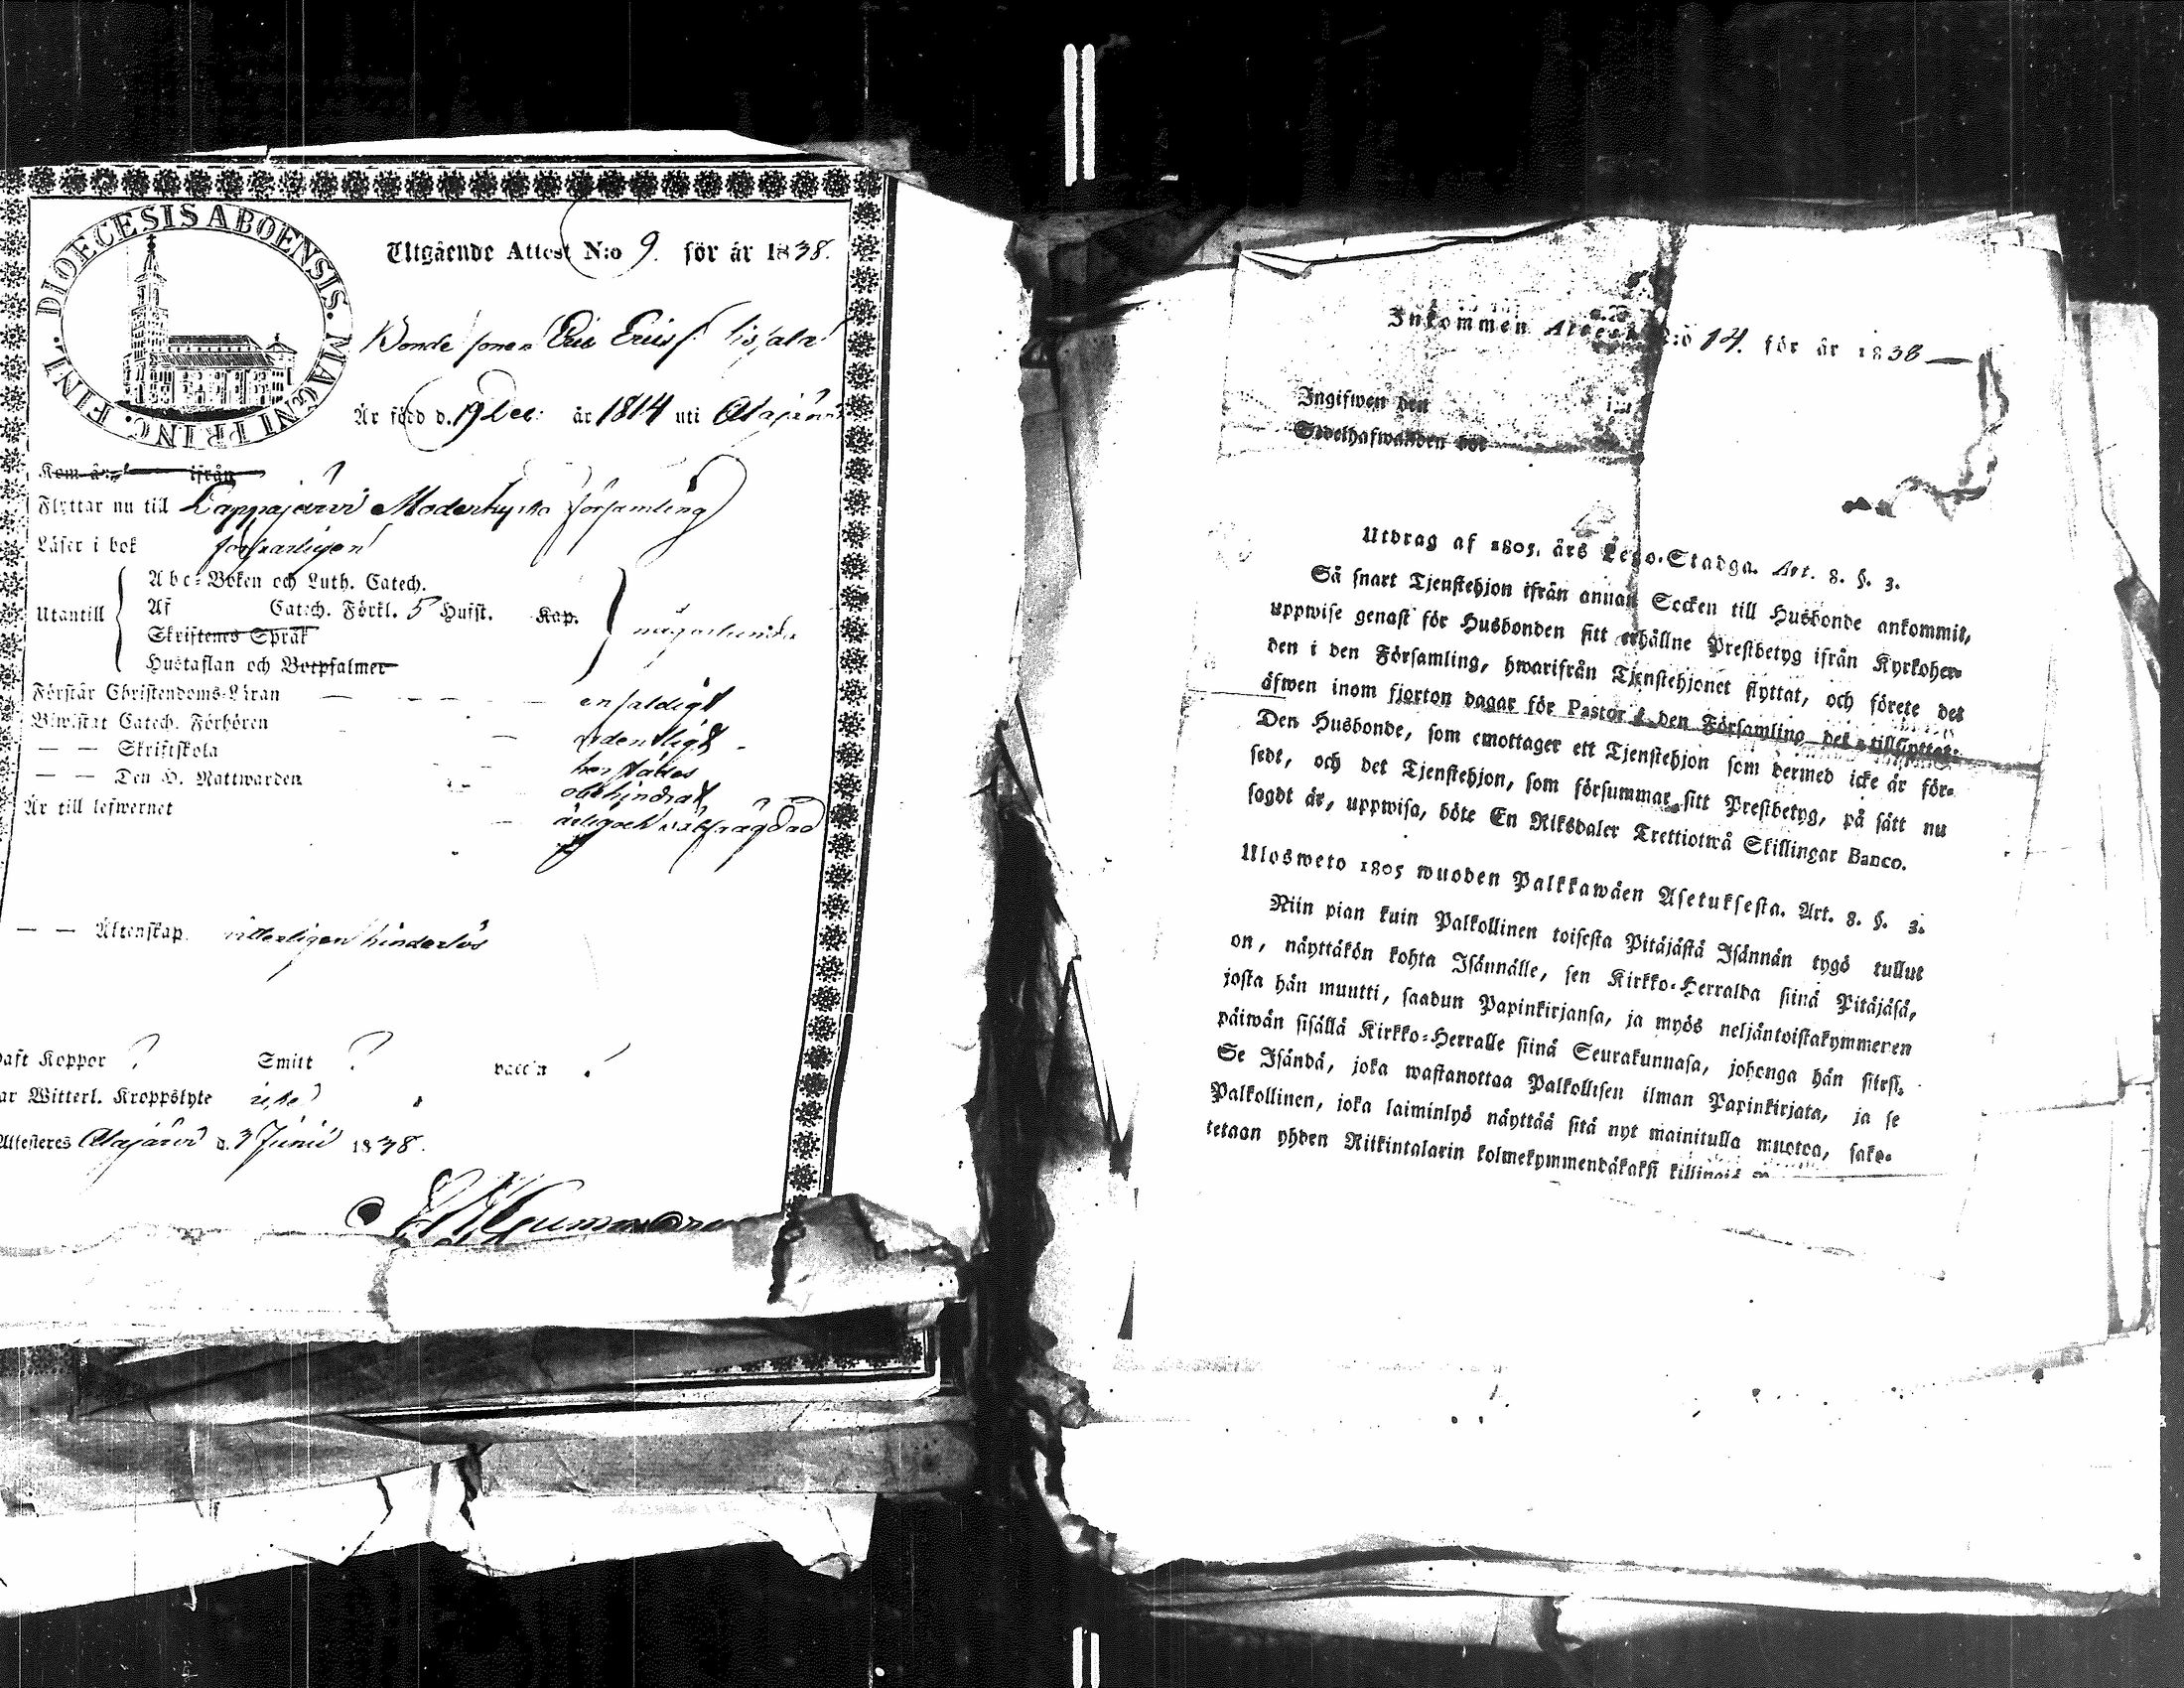 DIOECESIS ABOENSIS. MAGNI PRINC. FINL.
Utgående Attest N:o 9. för år 1838.
Bonde sonen Eric Ericss
Är född d. 19 Dec: år 1814 uti Alajärvi
Kom år ifrån
Flyttar nu till Lappajärvi Moderkyrko församling
Läser i bok försvarligen
Utantill
Abc-Boken och Luth. Catech.
Af Catech. Förkl. 5 Hufst. Kap.
Skriftenes Språk
Hustaflan och Botpsalmer
någorlunda
Förstår Christendoms-Läran — — — enfaldigt
Biwistat Catech. Förhören — ordentligt
— — Skriftskola — behstädes
— — Den H. Nattwarden obehindrat
Är till lefwernet — ärlig och välfrägdad
— — Äktenskap. vitterligen hinderlös
haft Koppor ? Smitt ? vaccin ?
har Witterl. Kroppslyte icke
Attesteres Alajärvi d. 3 Junii 1838.
Inkommen Attest N:o 14. för år 1838 —
Ingifwen den
Sedelhafwanden bor
Utdrag af 1805. års Lego-Stadga. Art. 8. §. 3.
Så snart Tjenstehjon ifrån annan Socken till Husbonde ankommit,
uppwise genast för Husbonden sitt erhållne Prestbetyg ifrån Kyrkoher-
den i den Församling, hwarifrån Tjenstehjonet flyttat, och förete det
äfwen inom fjorton dagar för Pastor i den Församling det tillflyttat.
Den Husbonde, som emottager ett Tjenstehjon som dermed icke är för-
sedt, och det Tjenstehjon, som försummar sitt Prestbetyg, på sätt nu
sagdt är, uppwisa, böte En Riksdaler Trettiotwå Skillingar Banco.
Ulosweto 1805 wuoden Palkkawäen Asetuksesta. Art. 8. §. 3.
Niin pian kuin Palkollinen toisesta Pitäjästä Isännän tygö tullut
on, näyttäkön kohta Isännälle, sen Kirkko-Herralda siinä Pitäjäsä,
josta hän muutti, saadun Papinkirjansa, ja myös neljäntoistakymmenen
päiwän sisällä Kirkko-Herralle siinä Seurakunnasa, johonga hän siirsi.
Se Isändä, joka wastanottaa Palkollisen ilman Papinkirjata, ja se
Palkollinen, joka laiminlyö näyttää sitä nyt mainitulla muotoa, sake-
tetaan yhden Riikintalarin kolmekymmendäkaksi killingiä